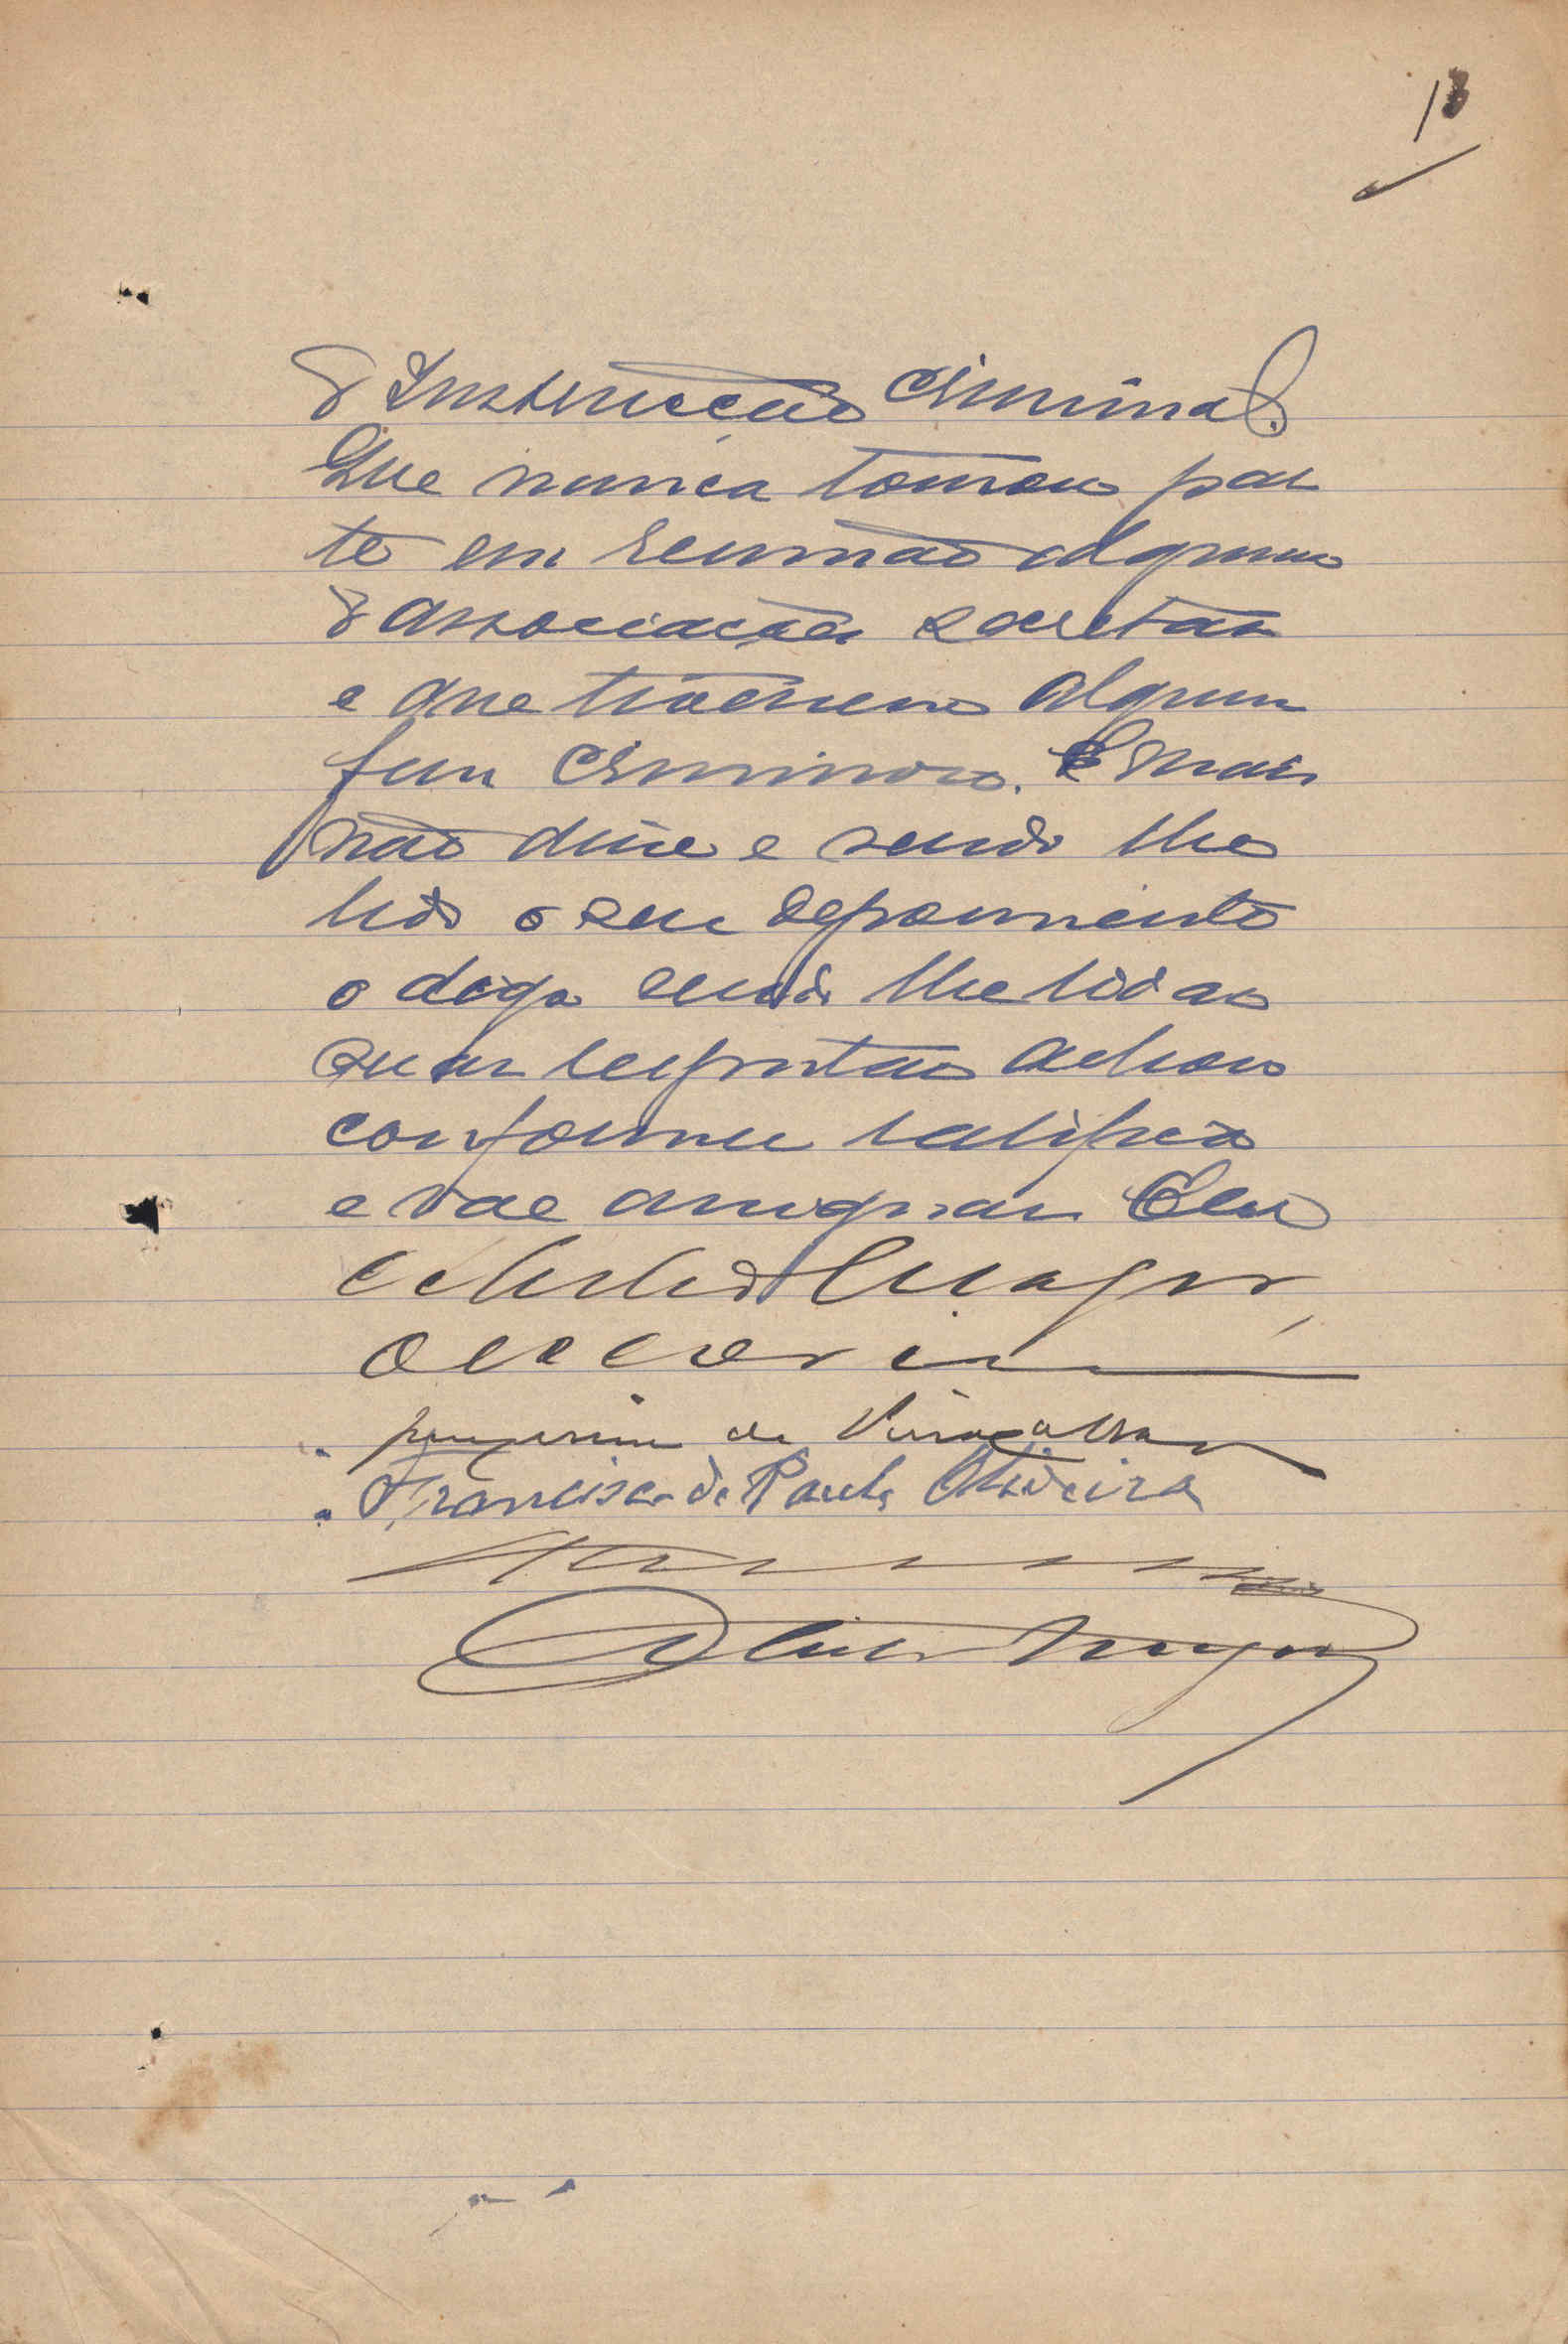 13
d'Instrucção Criminal.
Que nunca tomou par
te em reunião alguma
d'associações secretas
e que tivessem algum
fim criminoso. E mais
não disse e sendo lhe
lido o seu depoimento
o digo sendo lhe lidas
suas respostas achou
conforme ratifica
e vae assignar. Eu
escrevi
de
Francisco de Paula Oliveira